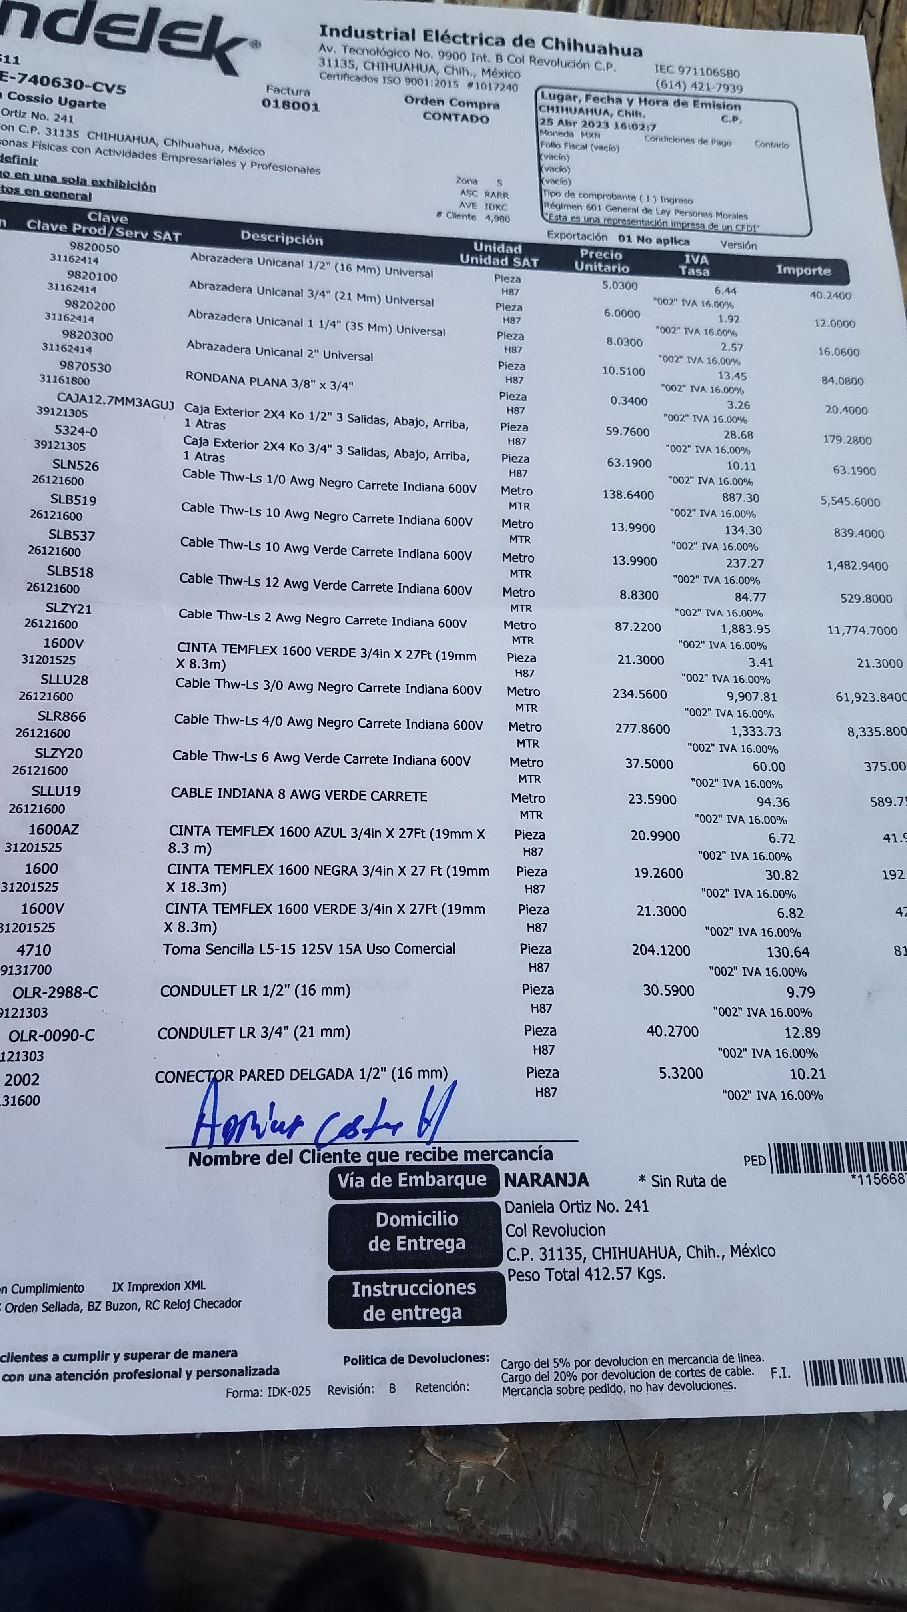 ndelek
Industrial Eléctrica de Chihuahua
Av. Tecnológico No. 9900 Int. B Col Revolución C.P.
31135, CHIHUAHUA, Chih., México
IEC 971106SB0
Certificados ISO 9001:2015 #1017240
(614) 421-7939
511
E-740630-CV5
Cossio Ugarte
Ortiz No. 241
on C.P. 31135 CHIHUAHUA, Chihuahua, México
onas Físicas con Actividades Empresariales y Profesionales
definir
o en una sola exhibición
tos en general
Factura
018001
Orden Compra
CONTADO
Zona S
ASC RARR
AVE IDKC
# Cliente 4,980
Lugar, Fecha y Hora de Emision
CHIHUAHUA, Chih. C.P.
25 Abr 2023 16:02:7
Moneda MXN Condiciones de Pago Contado
Folio Fiscal (vacío)
(vacío)
(vacío)
(vacío)
Tipo de comprobante ( I ) Ingreso
Régimen 601 General de Ley Personas Morales
"Esta es una representación impresa de un CFDI"
Exportación 01 No aplica Versión
Clave Descripción Unidad Precio IVA Importe
Clave Prod/Serv SAT Unidad SAT Unitario Tasa
9820050 Abrazadera Unicanal 1/2" (16 Mm) Universal Pieza 5.0300 6.44 40.2400
31162414 H87 "002" IVA 16.00%
9820100 Abrazadera Unicanal 3/4" (21 Mm) Universal Pieza 6.0000 1.92 12.0000
31162414 H87 "002" IVA 16.00%
9820200 Abrazadera Unicanal 1 1/4" (35 Mm) Universal Pieza 8.0300 2.57 16.0600
31162414 H87 "002" IVA 16.00%
9820300 Abrazadera Unicanal 2" Universal Pieza 10.5100 13.45 84.0800
31162414 H87 "002" IVA 16.00%
9870530 RONDANA PLANA 3/8" x 3/4" Pieza 0.3400 3.26 20.4000
31161800 H87 "002" IVA 16.00%
CAJA12.7MM3AGUJ Caja Exterior 2X4 Ko 1/2" 3 Salidas, Abajo, Arriba, Pieza 59.7600 28.68 179.2800
39121305 1 Atras H87 "002" IVA 16.00%
5324-0 Caja Exterior 2X4 Ko 3/4" 3 Salidas, Abajo, Arriba, Pieza 63.1900 10.11 63.1900
39121305 1 Atras H87 "002" IVA 16.00%
SLN526 Cable Thw-Ls 1/0 Awg Negro Carrete Indiana 600V Metro 138.6400 887.30 5,545.6000
26121600 MTR "002" IVA 16.00%
SLB519 Cable Thw-Ls 10 Awg Negro Carrete Indiana 600V Metro 13.9900 134.30 839.4000
26121600 MTR "002" IVA 16.00%
SLB537 Cable Thw-Ls 10 Awg Verde Carrete Indiana 600V Metro 13.9900 237.27 1,482.9400
26121600 MTR "002" IVA 16.00%
SLB518 Cable Thw-Ls 12 Awg Verde Carrete Indiana 600V Metro 8.8300 84.77 529.8000
26121600 MTR "002" IVA 16.00%
SLZY21 Cable Thw-Ls 2 Awg Negro Carrete Indiana 600V Metro 87.2200 1,883.95 11,774.7000
26121600 MTR "002" IVA 16.00%
1600V CINTA TEMFLEX 1600 VERDE 3/4in X 27Ft (19mm Pieza 21.3000 3.41 21.3000
31201525 X 8.3m) H87 "002" IVA 16.00%
SLLU28 Cable Thw-Ls 3/0 Awg Negro Carrete Indiana 600V Metro 234.5600 9,907.81 61,923.8400
26121600 MTR "002" IVA 16.00%
SLR866 Cable Thw-Ls 4/0 Awg Negro Carrete Indiana 600V Metro 277.8600 1,333.73 8,335.800
26121600 MTR "002" IVA 16.00%
SLZY20 Cable Thw-Ls 6 Awg Verde Carrete Indiana 600V Metro 37.5000 60.00 375.00
26121600 MTR "002" IVA 16.00%
SLLU19 CABLE INDIANA 8 AWG VERDE CARRETE Metro 23.5900 94.36 589.7
26121600 MTR "002" IVA 16.00%
1600AZ CINTA TEMFLEX 1600 AZUL 3/4in X 27Ft (19mm X Pieza 20.9900 6.72 41.9
31201525 8.3 m) H87 "002" IVA 16.00%
1600 CINTA TEMFLEX 1600 NEGRA 3/4in X 27 Ft (19mm Pieza 19.2600 30.82 192
31201525 X 18.3m) H87 "002" IVA 16.00%
1600V CINTA TEMFLEX 1600 VERDE 3/4in X 27Ft (19mm Pieza 21.3000 6.82 42
31201525 X 8.3m) H87 "002" IVA 16.00%
4710 Toma Sencilla L5-15 125V 15A Uso Comercial Pieza 204.1200 130.64 81
9131700 H87 "002" IVA 16.00%
OLR-2988-C CONDULET LR 1/2" (16 mm) Pieza 30.5900 9.79
9121303 H87 "002" IVA 16.00%
OLR-0090-C CONDULET LR 3/4" (21 mm) Pieza 40.2700 12.89
121303 H87 "002" IVA 16.00%
2002 CONECTOR PARED DELGADA 1/2" (16 mm) Pieza 5.3200 10.21
31600 H87 "002" IVA 16.00%
Nombre del Cliente que recibe mercancía
PED
*115668
Vía de Embarque NARANJA * Sin Ruta de
Domicilio de Entrega
Daniela Ortiz No. 241
Col Revolucion
C.P. 31135, CHIHUAHUA, Chih., México
Peso Total 412.57 Kgs.
Instrucciones
de entrega
n Cumplimiento IX Imprexion XML
Orden Sellada, BZ Buzon, RC Reloj Checador
clientes a cumplir y superar de manera
con una atención profesional y personalizada
Politica de Devoluciones: Cargo del 5% por devolucion en mercancia de linea.
Cargo del 20% por devolucion de cortes de cable. F.I.
Mercancia sobre pedido, no hay devoluciones.
Forma: IDK-025 Revisión: B Retención: